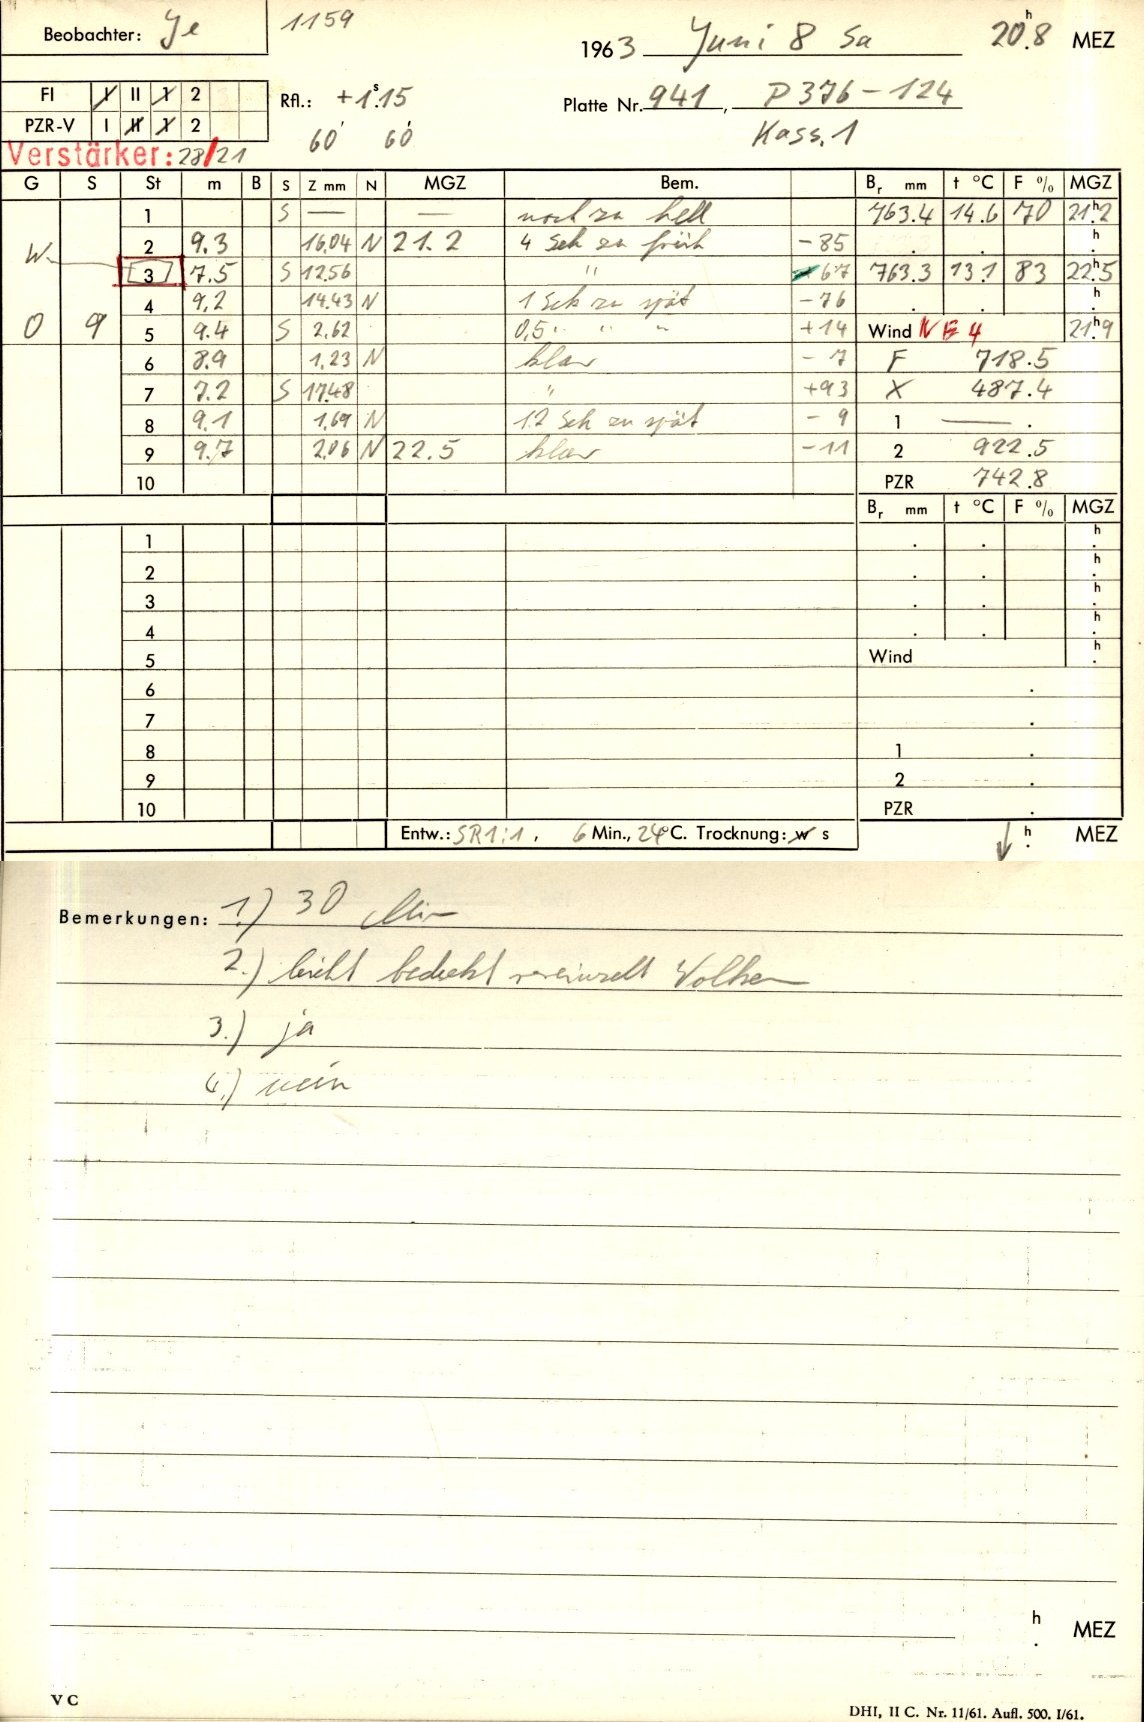 Beobachter: Je 1159 1963 Juni 8 Sa 20h.8 MEZ
FI I II 1 2 Rfl.: +1s.15 Platte Nr. 941, P376-124
PZR-V I II 1 2 60' 60' Kass. 1
Verstärker: 28/21
G S St m B S Z mm N MGZ Bem. Br mm t °C F % MGZ
1 S — — noch zu hell 763.4 14.6 70 21h.2
W 2 9.3 16.04 N 21.2 4 Sek zu früh -85 . . h.
3 7.5 S 12.56 " -67 763.3 13.1 83 22h.5
4 9.2 14.43 N 1 Sek zu spät -76 . . h.
O 9 5 9.4 S 2.62 0,5 " " " +14 Wind NE 4 21h.9
6 8.9 1.23 N klar -7 F 718.5
7 7.2 S 17.48 " +93 X 487.4
8 9.1 1.69 N 1.2 Sek zu spät -9 1 — .
9 9.7 2.06 N 22.5 klar -11 2 922.5
10 PZR 742.8
Br mm t °C F % MGZ
1 . . h.
2 . . h.
3 . . h.
4 . . h.
5 Wind h.
6 .
7 .
8 1 .
9 2 .
10 PZR .
Entw.: SR 1:1, 6 Min., 24°C. Trocknung: w s h. MEZ
Bemerkungen: 1.) 30 Min
2.) leicht bedeckt vereinzelt Wolken
3.) ja
4.) nein
h. MEZ
V C
DHI, II C. Nr. 11/61. Aufl. 500. I/61.